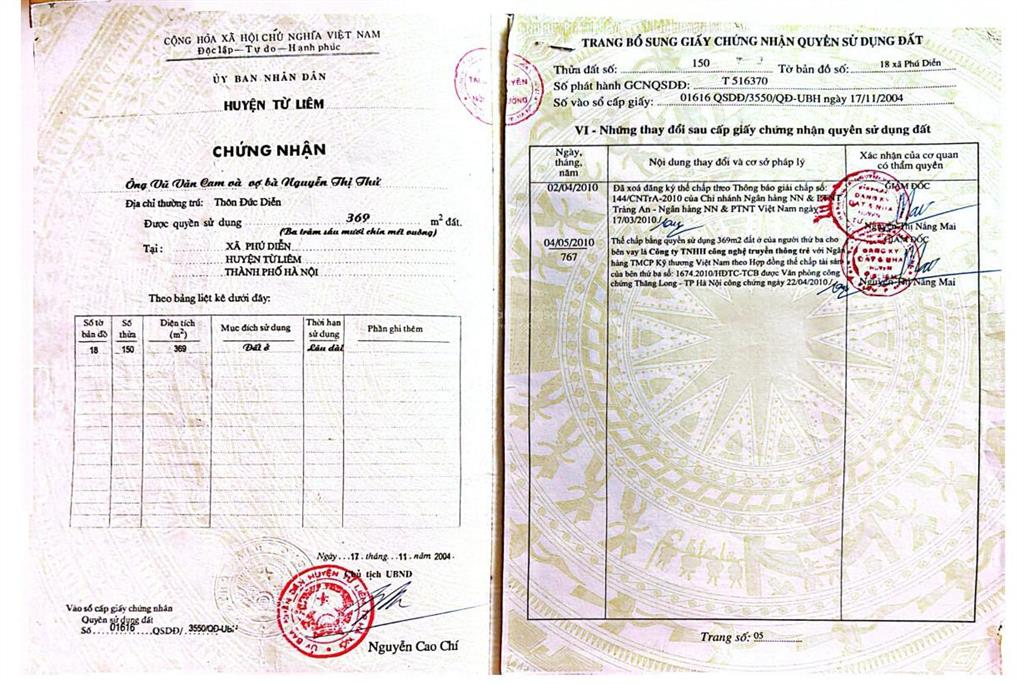 CỘNG HÒA XÃ HỘI CHỦ NGHĨA VIỆT NAM
Độc lập – Tự do – Hạnh phúc
ỦY BAN NHÂN DÂN
HUYỆN TỪ LIÊM
CHỨNG NHẬN
Ông Vũ Văn Cam và vợ bà Nguyễn Thị Thử
Địa chỉ thường trú: Thôn Đức Diễn
Được quyền sử dụng 369 m2 đất.
(Ba trăm sáu mươi chín mét vuông)
Tại : XÃ PHÚ DIỄN
HUYỆN TỪ LIÊM
THÀNH PHỐ HÀ NỘI
Theo bảng liệt kê dưới đây:
Số tờ bản đồ Số thửa Diện tích (m2) Mục đích sử dụng Thời hạn sử dụng Phần ghi thêm
18 150 369 Đất ở Lâu dài
Ngày...17.tháng...11.năm 2004.
Chủ tịch UBND
ỦY BAN NHÂN DÂN HUYỆN TỪ LIÊM
Vào sổ cấp giấy chứng nhận
Quyền sử dụng đất
Số 01616 QSDĐ/ 3550/QĐ-UBH
Nguyễn Cao Chí
TRANG BỔ SUNG GIẤY CHỨNG NHẬN QUYỀN SỬ DỤNG ĐẤT
Thửa đất số: 150 Tờ bản đồ số: 18 xã Phú Diễn
Số phát hành GCNQSDĐ: T 516370
Số vào sổ cấp giấy: 01616 QSDĐ/3550/QĐ-UBH ngày 17/11/2004
VI - Những thay đổi sau cấp giấy chứng nhận quyền sử dụng đất
Ngày, tháng, năm Nội dung thay đổi và cơ sở pháp lý Xác nhận của cơ quan có thẩm quyền
02/04/2010 Đã xoá đăng ký thế chấp theo Thông báo giải chấp số:
144/CNTrA-2010 của Chi nhánh Ngân hàng NN & PTNT
Tràng An - Ngân hàng NN & PTNT Việt Nam ngày
17/03/2010
GIÁM ĐỐC
Nguyễn Thị Năng Mai
04/05/2010
767
Thế chấp bằng quyền sử dụng 369m2 đất ở của người thứ ba cho
bên vay là Công ty TNHH công nghệ truyền thông trẻ với Ngân
hàng TMCP Kỹ thương Việt Nam theo Hợp đồng thế chấp tài sản
của bên thứ ba số: 1674.2010/HĐTC-TCB được Văn phòng công
chứng Thăng Long - TP Hà Nội công chứng ngày 22/04/2010
GIÁM ĐỐC
Nguyễn Thị Năng Mai
Trang số: 05